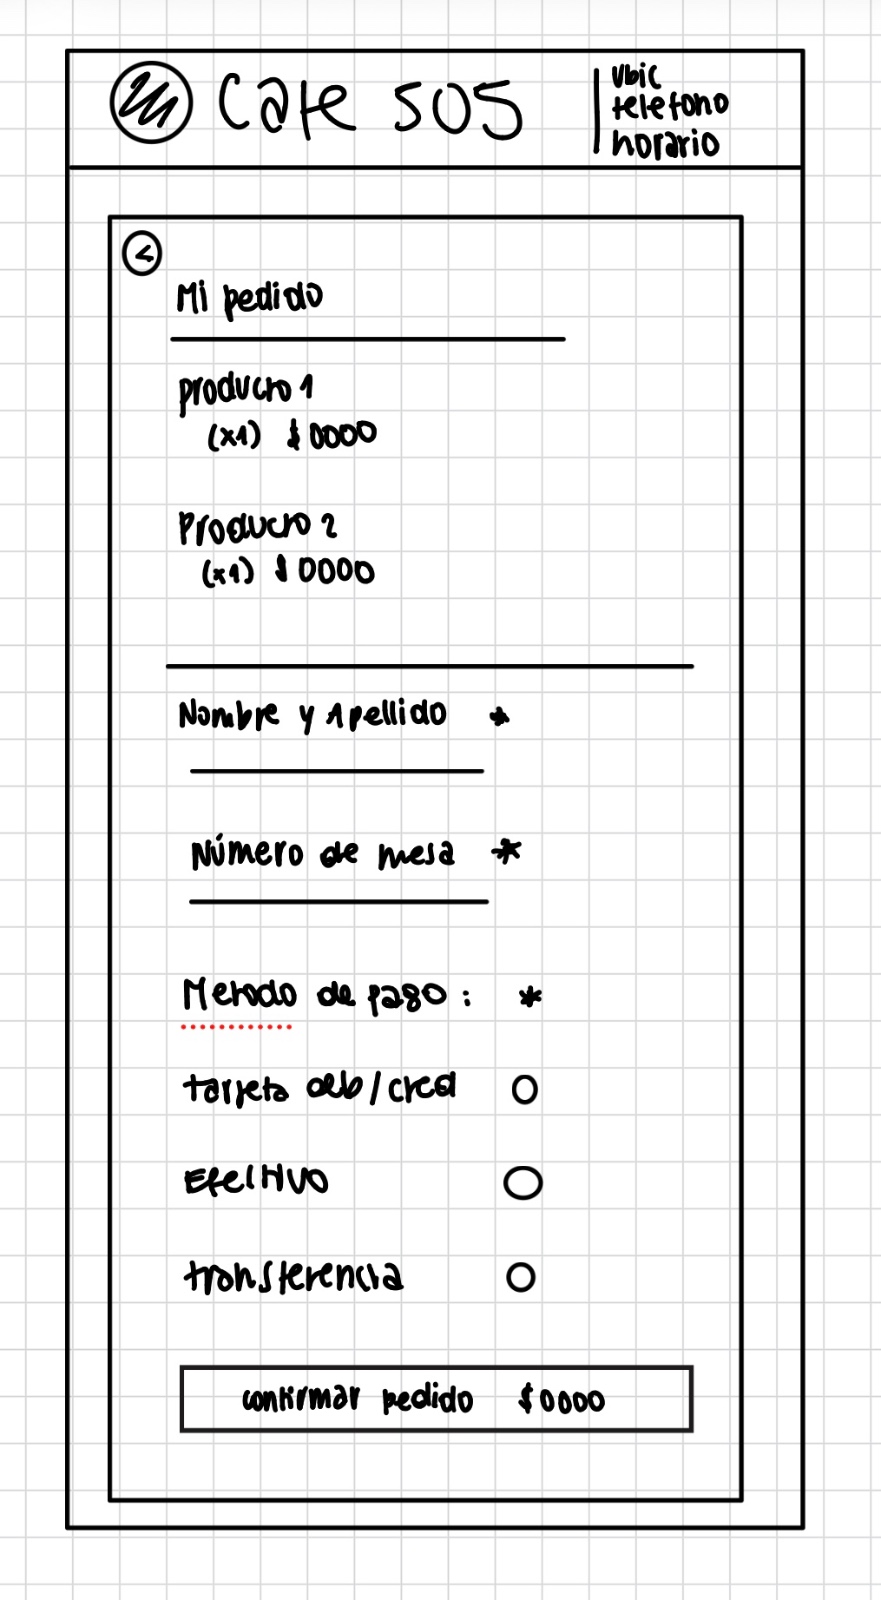 Cafe 505
Ubic
telefono
horario
<
Mi pedido
producto 1
(x1) $0000
Producto 2
(x1) $0000
Nombre y Apellido *
Número de mesa *
Metodo de pago: *
tarjeta deb/cred
Efectivo
transferencia
confirmar pedido $0000